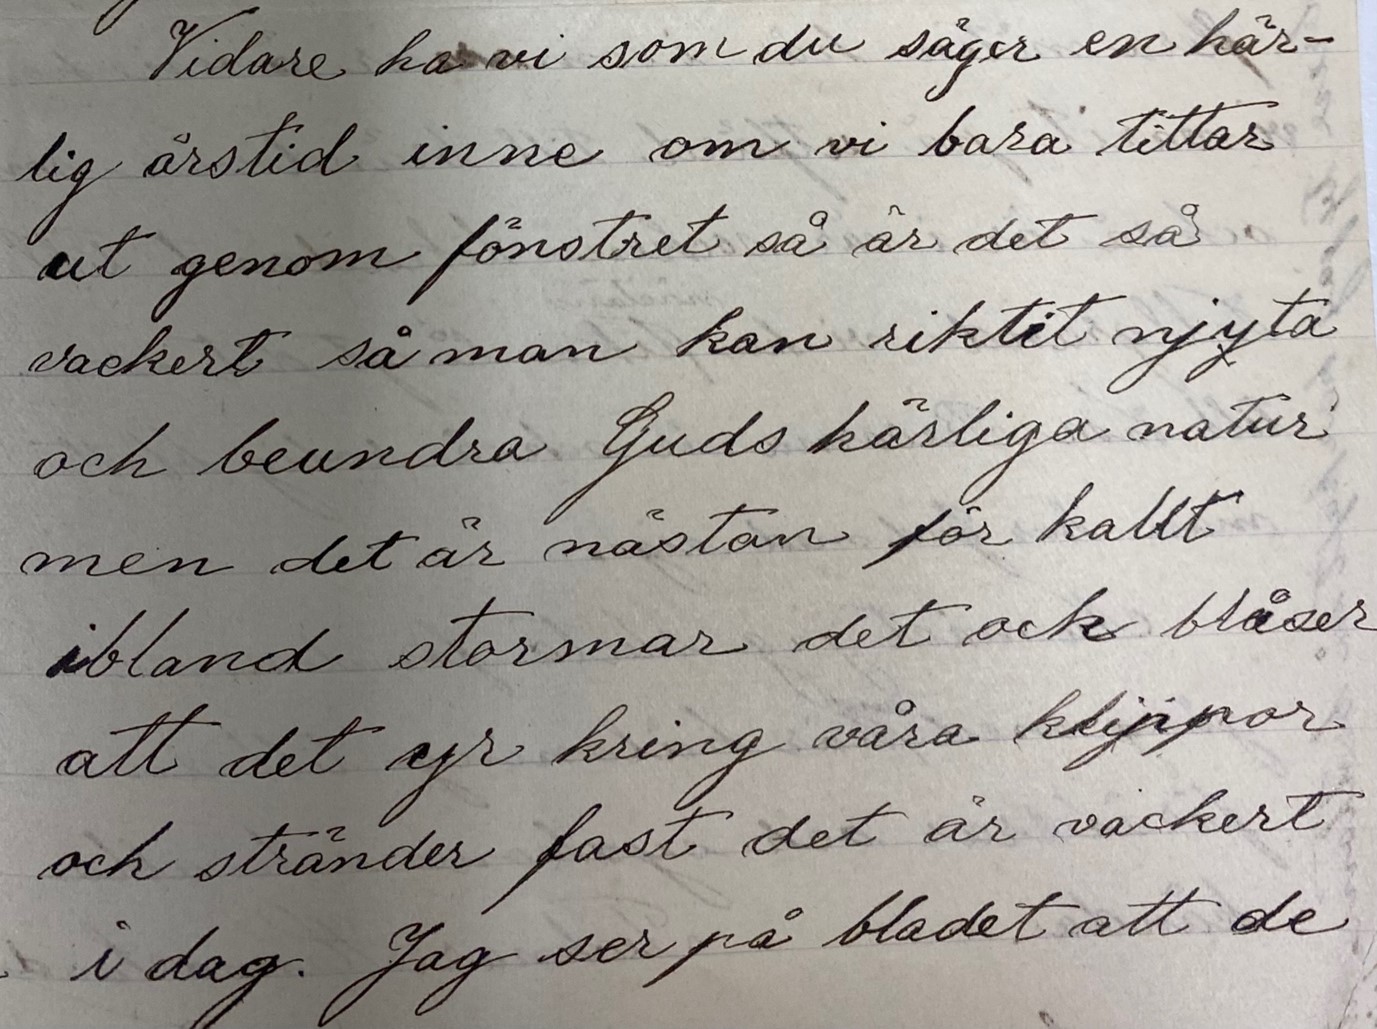 Vidare ha vi som du säger en här-
lig årstid inne om vi bara tittar
ut genom fönstret så är det så
vackert så man kan riktit njyta
och beundra Guds härliga natur
men det är nästan för kallt
ibland stormar det och blåser
att det yr kring våra klippor
och stränder fast det är vackert
i dag. Jag ser på bladet att de